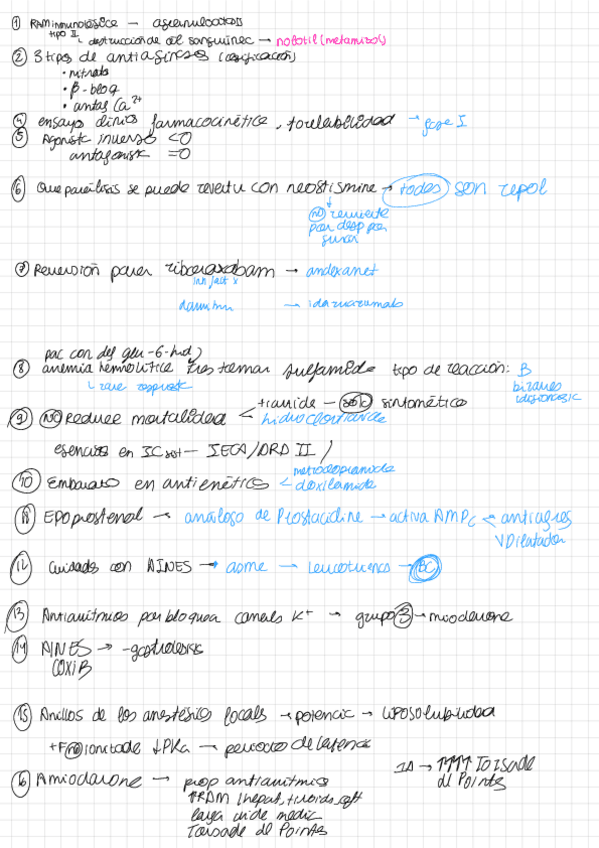 ① RAM inmunológica — agranulocitosis
tipo II
↳ destrucción de cel sanguinea → nolotil (metamizol)
② 3 tipos de antianginosos (clasificación)
• nitrato
• β-bloq
• antag Ca²⁺
④ ensayo clinico farmacocinética, tolerabilidad → fase I
⑤ Agonista inverso <0
antagonista =0
⑥ Que paralisis se puede revertir con neostigmina → todos son repol
NO
por desp por
⑦ Reversión para → andexanet
→ idarucizumab
pac con def glu-6-
⑧ anemia hemolítica tras tomar sulfamida tipo de reacción: B
⑨ NO Reduce mortalidad < — solo sintomático
hidroclorotiazida
esencial en IC sist — IECA/ARA II /
⑩ Embarazo en antieméticos < metoclopramida
doxilamida
⑪ Epoprostenol → análogo de Prostaciclina → activa AMPc < antiagreg
VDilatador
⑫ Cuidado con AINES → asma → leucotrienos → BC
⑬ Antiarritmicos por bloquea canales K⁺ → grupo 3 → amiodarona
⑭ AINES →
COXIB
⑮ Anillos de los anestésicos locales → potencia → liposolubilidad
+F no ionizada ↓PKa → periodo de latencia
⑯ Amiodarona — prop antiarritmica
IA → ↑↑↑↑ Torsade
de Pointes
↑RAM (hepat, tiroids,
larga vida media
Torsade de Pointes